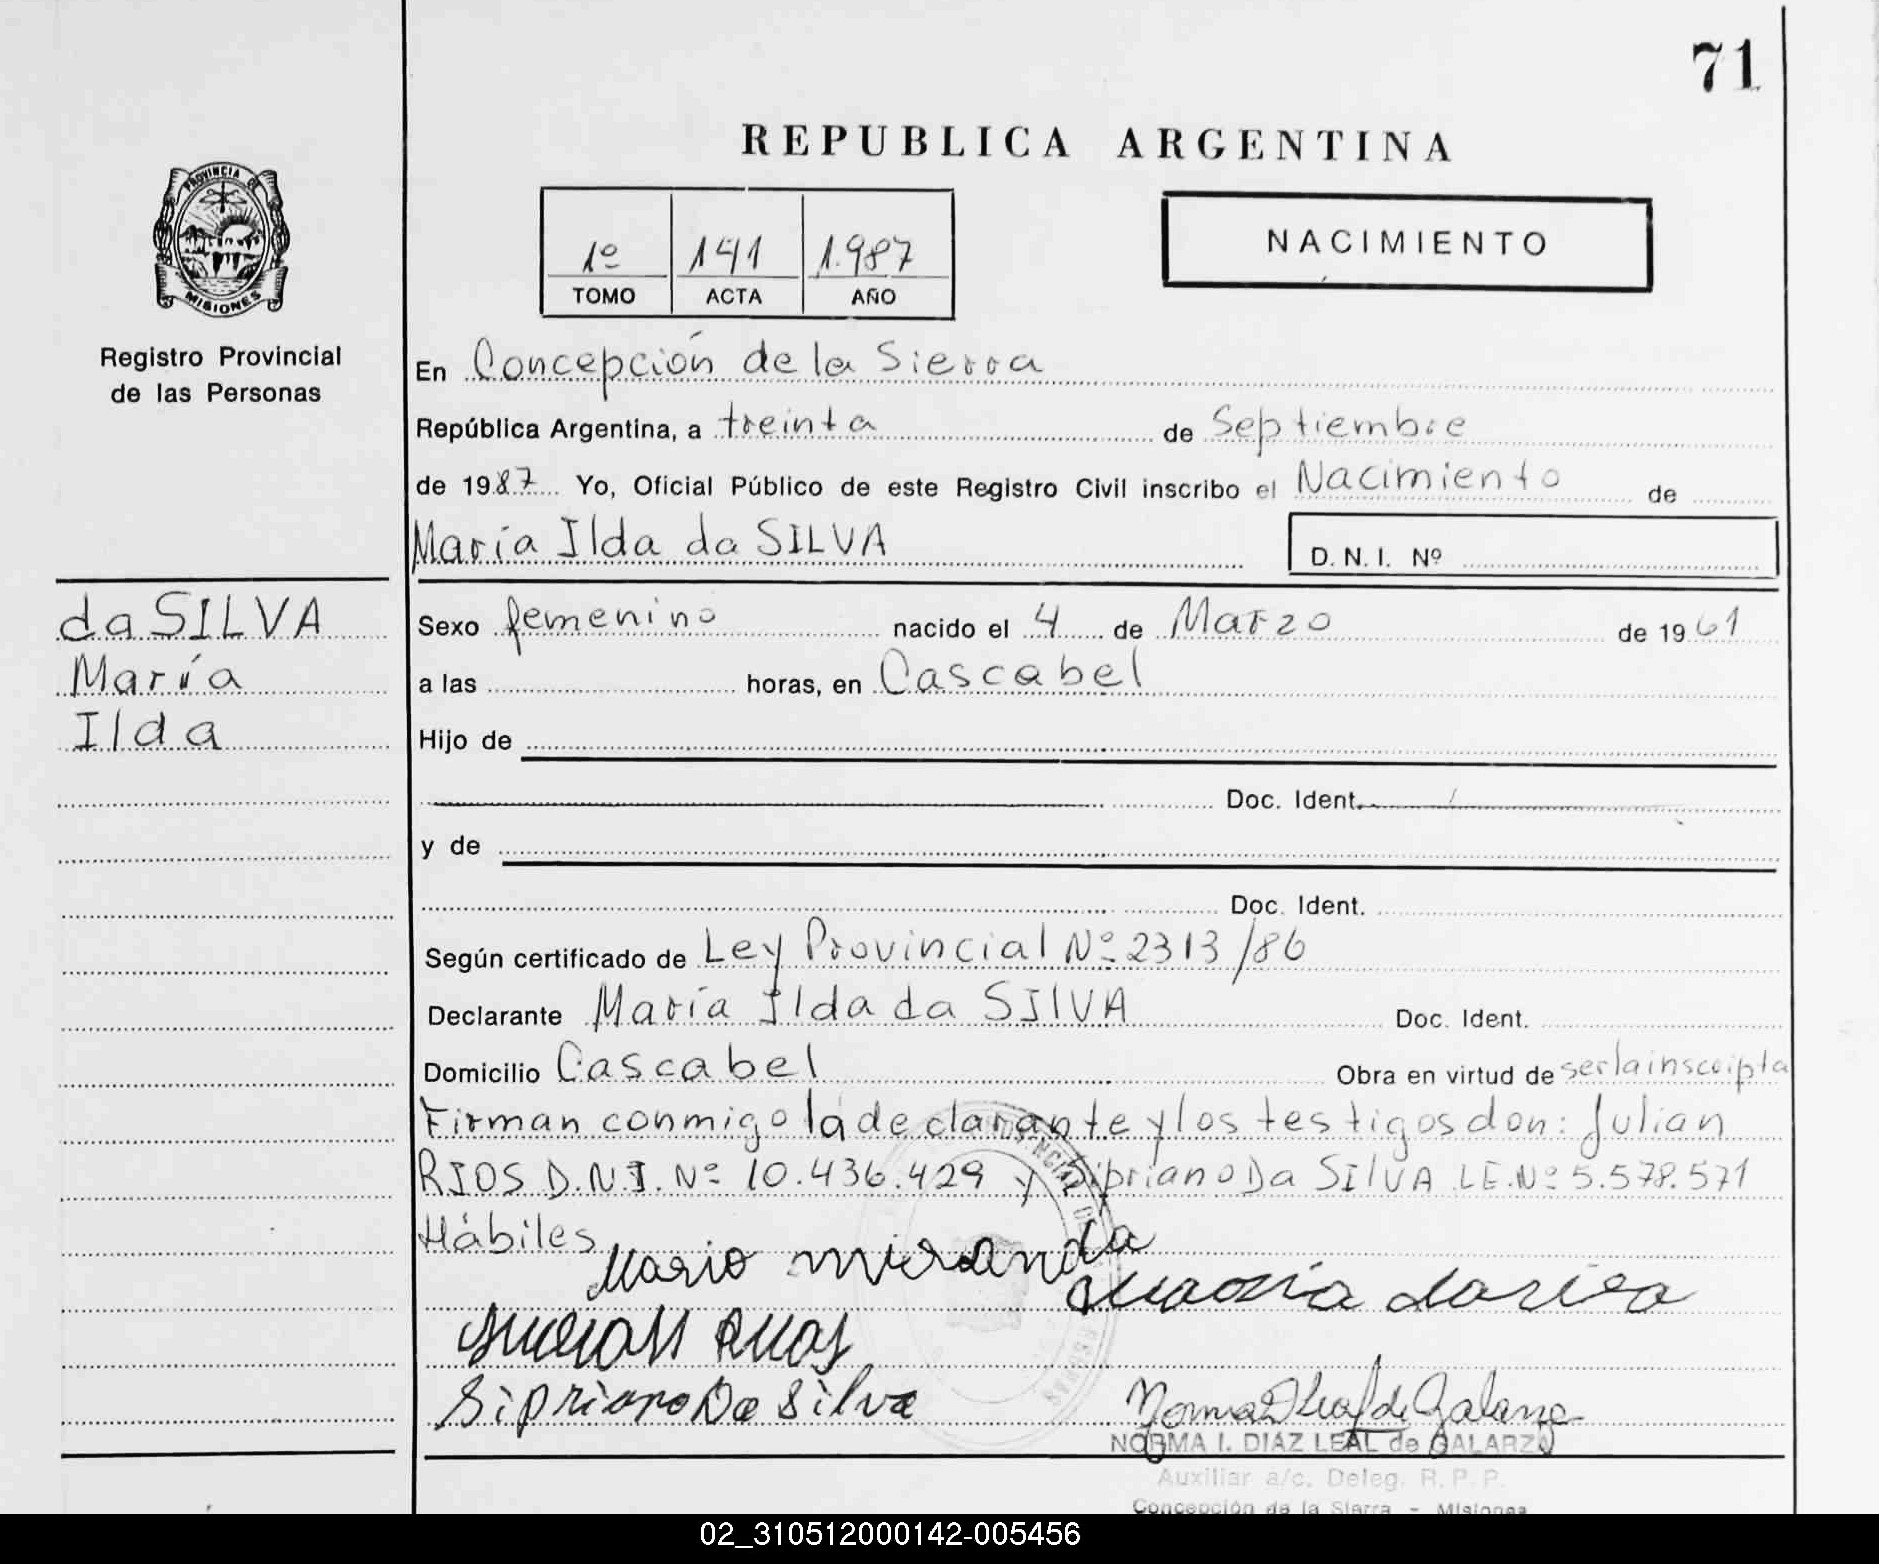 71
REPUBLICA ARGENTINA
PROVINCIA DE
MISIONES
Registro Provincial
de las Personas
1º 141 1.987
TOMO ACTA AÑO
NACIMIENTO
En Concepción de la Sierra
República Argentina, a treinta de Septiembre
de 1987 Yo, Oficial Público de este Registro Civil inscribo el Nacimiento de
María Ilda da SILVA D. N. I. Nº
da SILVA
María
Ilda
Sexo femenino nacido el 4 de Marzo de 1961
a las horas, en Cascabel
Hijo de
Doc. Ident.
y de
Doc. Ident.
Según certificado de Ley Provincial Nº 2313/86
Declarante María Ilda da SILVA Doc. Ident.
Domicilio Cascabel Obra en virtud de ser la inscripta
Firman conmigo la declarante y los testigos don: Julian
RIOS D.N.I. Nº 10.436.429 y Sipriano Da SILVA L.E. Nº 5.578.571
Hábiles
Mario miranda
Sipriano Da Silva
NORMA I. DIAZ LEAL de GALARZA
Auxiliar a/c. Deleg. R. P. P.
Concepción de la Sierra - Misiones
02_310512000142-005456